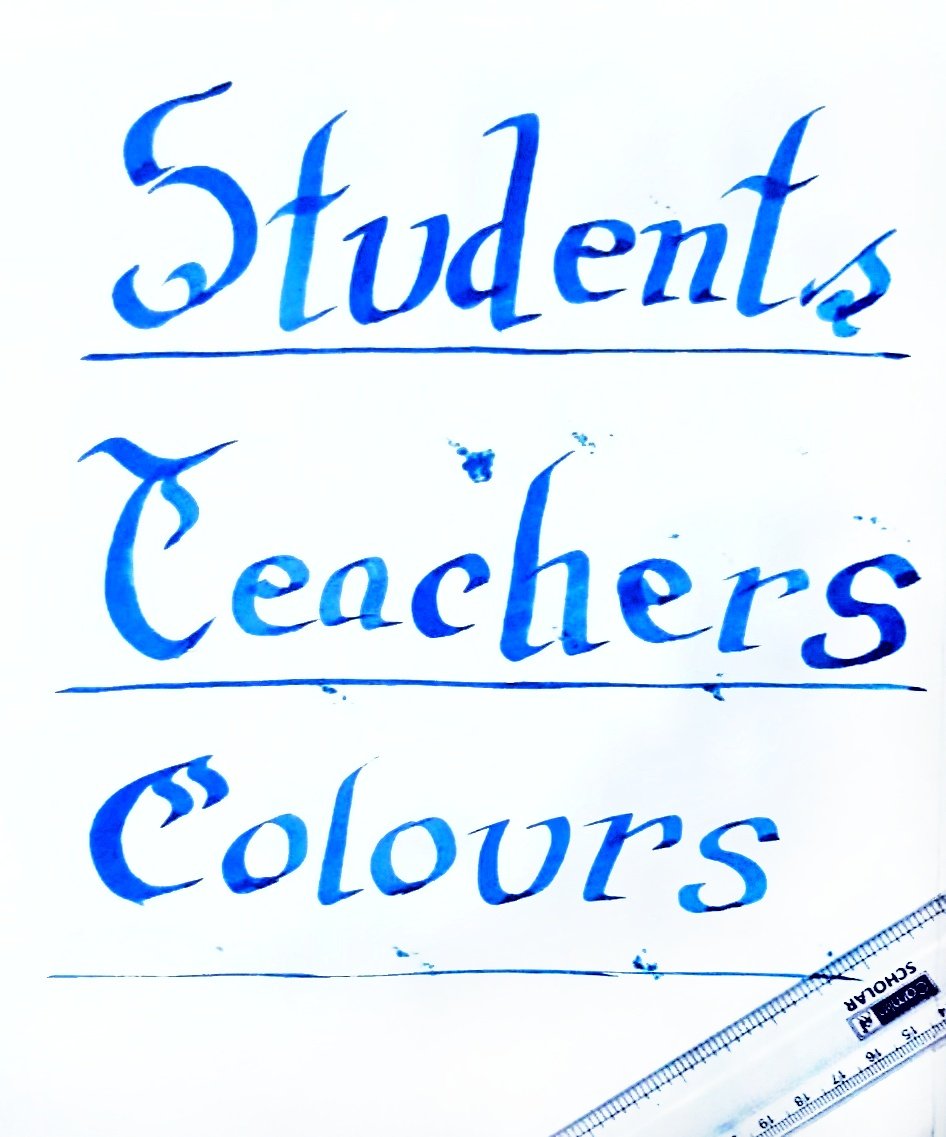 Students
Teachers
Colours
SCHOLAR
15
16
17
18
19